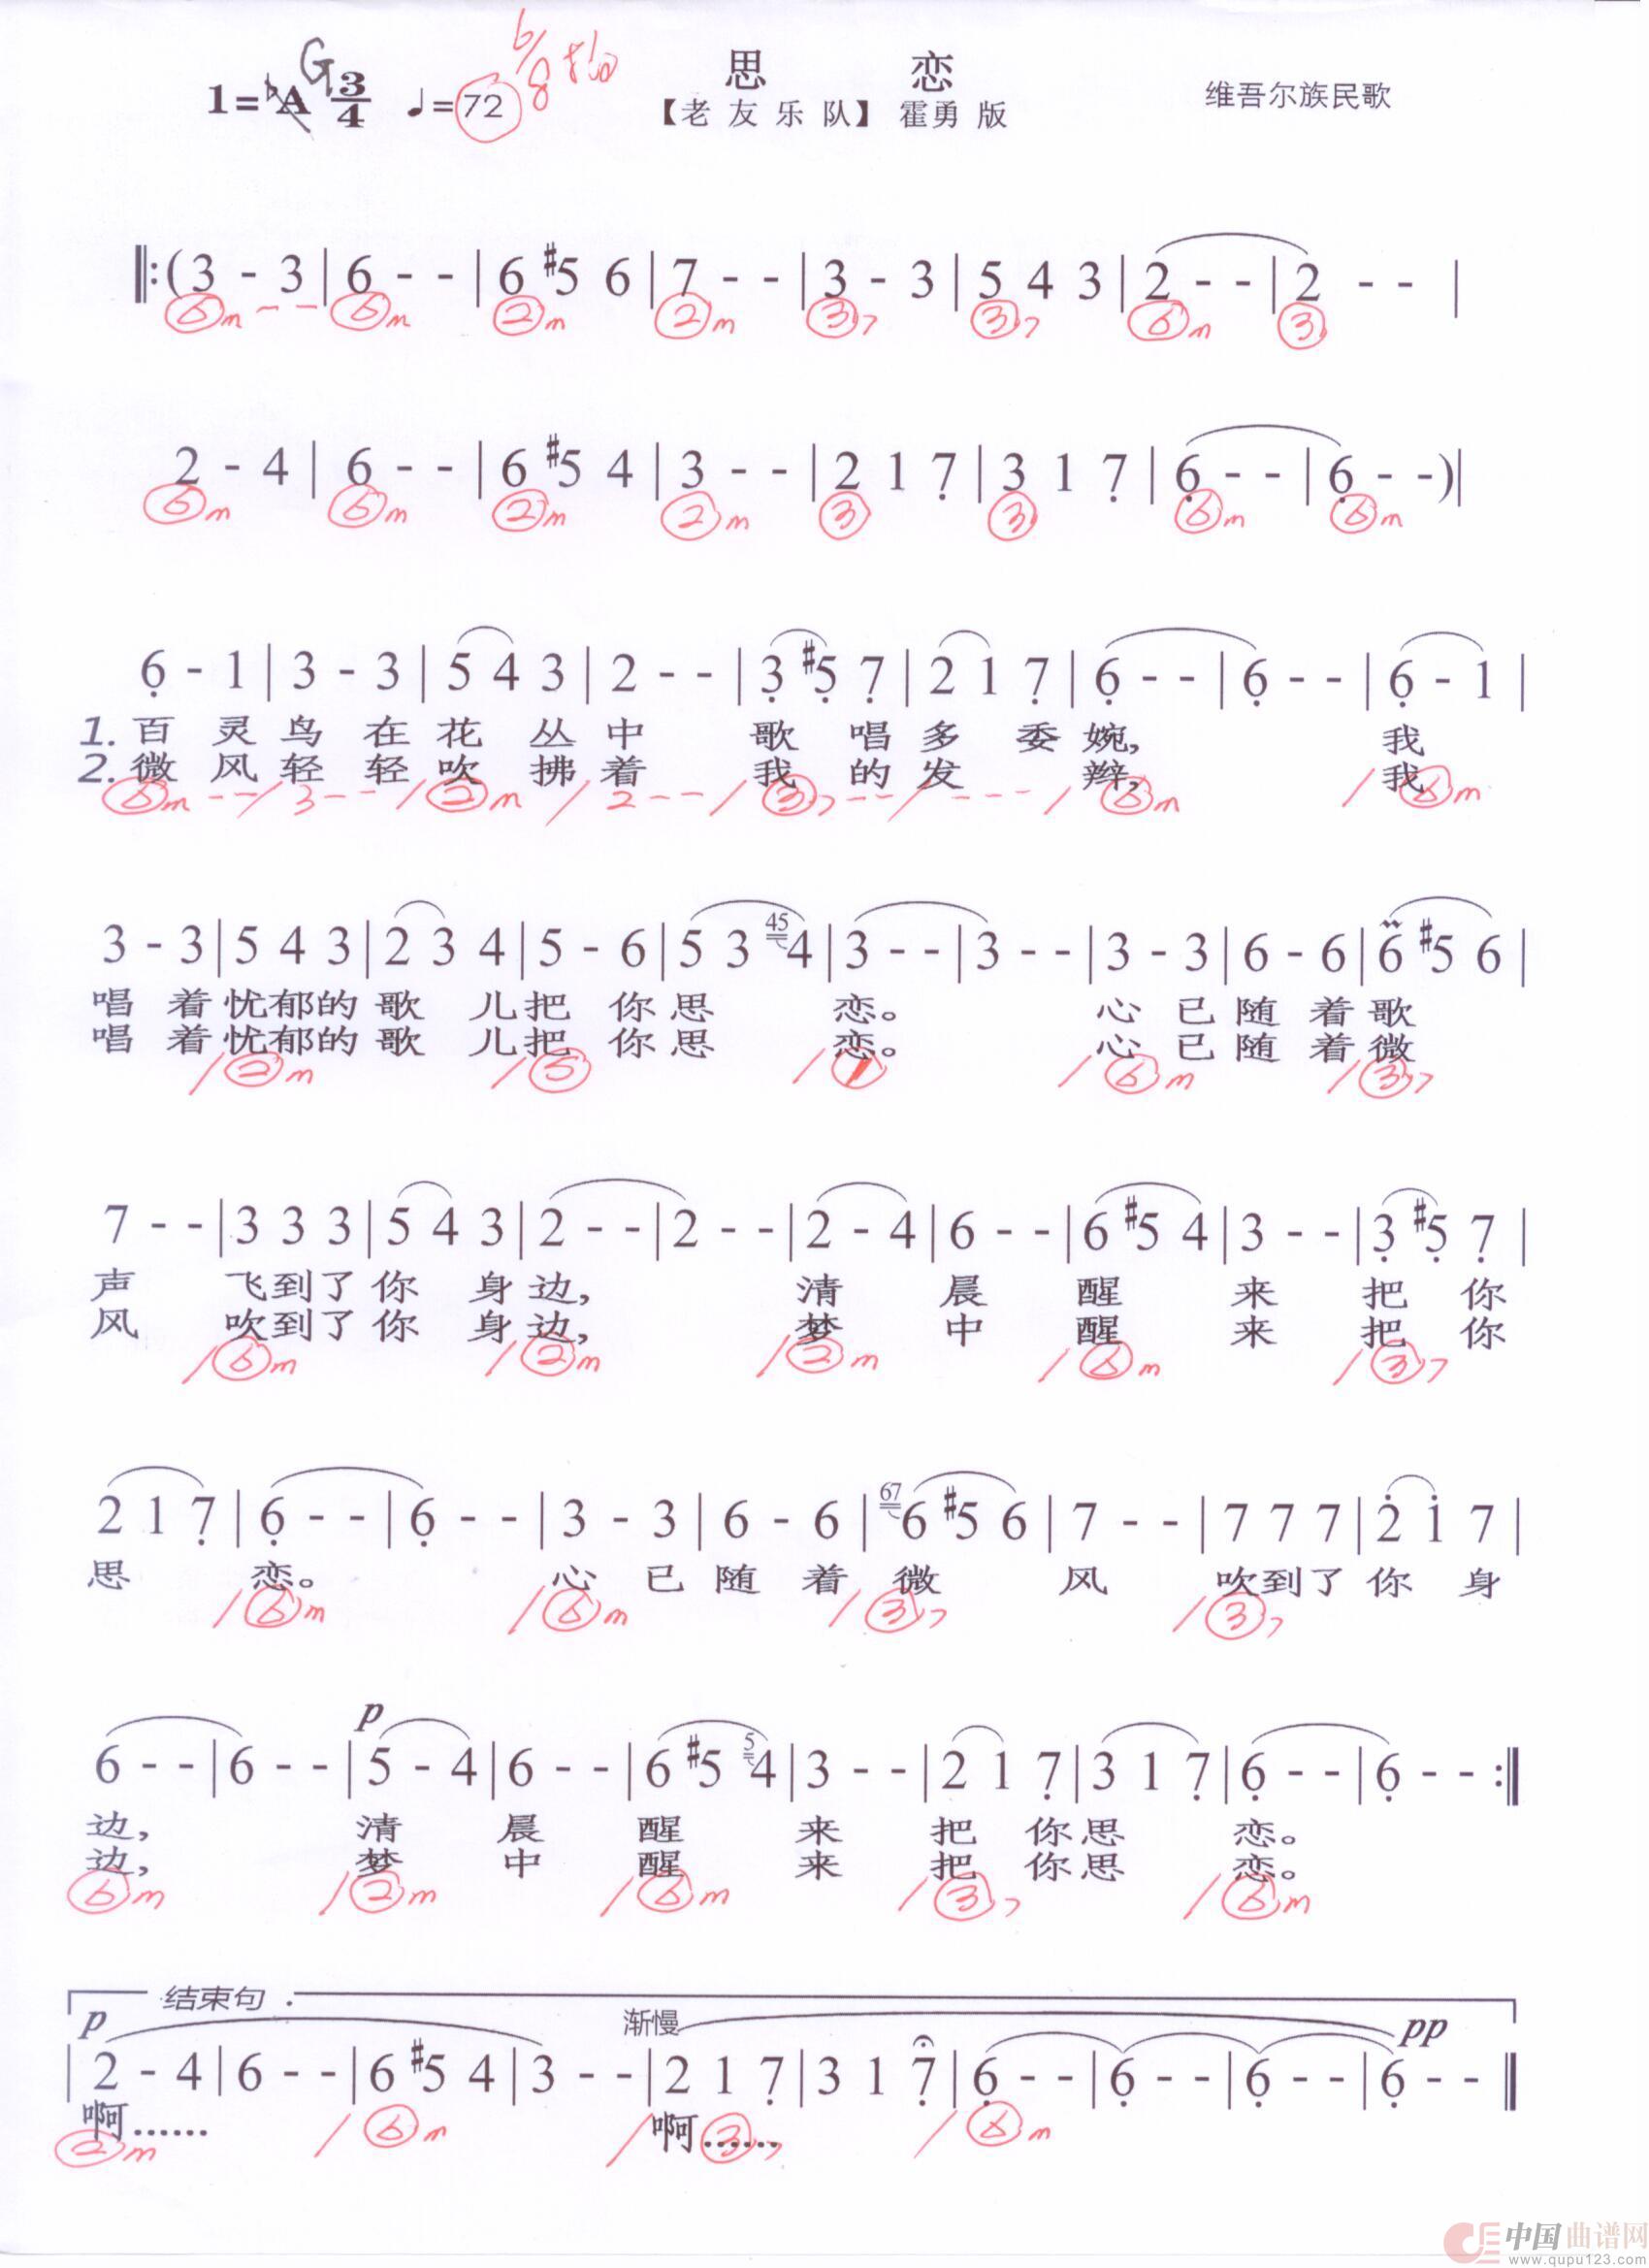 思 恋
1=♭A G 3/4 ♩=72 6/8拍
【老友乐队】 霍勇 版
维吾尔族民歌
‖:(3 - 3|6 - -|6 #5 6|7 - -|3 - 3|5 4 3|2 - -|2 - -|
⑥m - - ⑥m ②m ②m ③7 ③7 ⑥m ③
2 - 4|6 - -|6 #5 4|3 - -|2 1 7̣|3 1 7̣|6̣ - -|6̣ - -)|
⑥m ⑥m ②m ②m ③ ③ ⑥m ⑥m
6̣ - 1|3 - 3|5 4 3|2 - -|3̣ #5̣ 7̣|2 1 7̣|6̣ - -|6̣ - -|6̣ - 1|
1. 百 灵 鸟 在 花 丛 中 歌 唱 多 委 婉, 我
2. 微 风 轻 轻 吹 拂 着 我 的 发 辫, 我
⑥m - - / 3 - - / ②m / 2 - - / ③7 - - / - - - / ⑥m / ⑥m
3 - 3|5 4 3|2 3 4|5 - 6|5 3 45 4|3 - -|3 - -|3 - 3|6 - 6|6 #5 6|
唱 着 忧郁的 歌 儿把 你 思 恋。 心 已 随 着 歌
唱 着 忧郁的 歌 儿把 你 思 恋。 心 已 随 着 微
/ ②m / ⑤ / ① / ⑥m / ③7
7 - -|3 3 3|5 4 3|2 - -|2 - -|2 - 4|6 - -|6 #5 4|3 - -|3̣ #5̣ 7̣|
声 飞到了 你 身 边, 清 晨 醒 来 把 你
风 吹到了 你 身 边, 梦 中 醒 来 把 你
/ ⑥m / ②m / ②m / ⑥m / ③7
2 1 7̣|6̣ - -|6̣ - -|3 - 3|6 - 6|67 6 #5 6|7 - -|7 7 7|2̇ 1̇ 7|
思 恋。 心 已 随 着 微 风 吹到了 你 身
/ ⑥m / ⑥m / ③7 / ③7
p
6 - -|6 - -|5 - 4|6 - -|6 #5 5 4|3 - -|2 1 7̣|3 1 7̣|6̣ - -|6̣ - - :‖
边, 清 晨 醒 来 把 你思 恋。
边, 梦 中 醒 来 把 你思 恋。
⑥m / ②m / ⑥m / ③7 / ⑥m
结束句
p 渐慢 pp
|2 - 4|6 - -|6 #5 4|3 - -|2 1 7̣|3 1 7̣|6̣ - -|6̣ - -|6̣ - -|6̣ - -‖
啊…… 啊……
②m / ⑥m / ③7 / ⑥m
中国曲谱网
www.qupu123.com